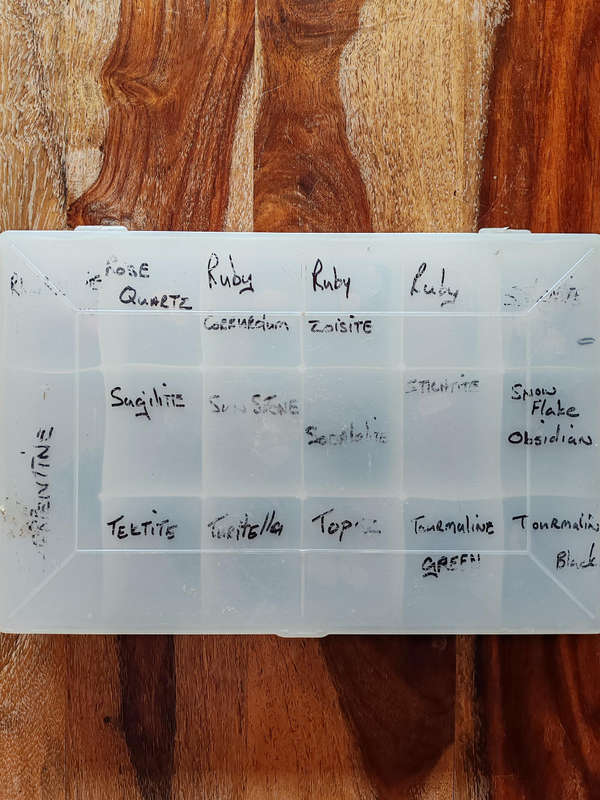 ROSE
QUARTZ
Ruby
CORRUNDUM
Ruby
ZOISITE
Ruby
SugiliTE
SUN STONE
STICHTITE
SNOW
Flake
Obsidian
TEKTITE
TuRiTElla
TOURMALINE
GREEN
TOURMALIN
Black